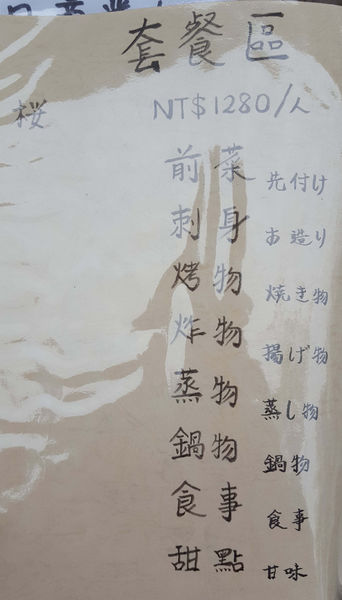 套餐區
桜 NT$1280/人
前菜 先付け
刺身 お造り
烤物 焼き物
炸物 揚げ物
蒸物 蒸し物
鍋物 鍋物
食事 食事
甜點 甘味